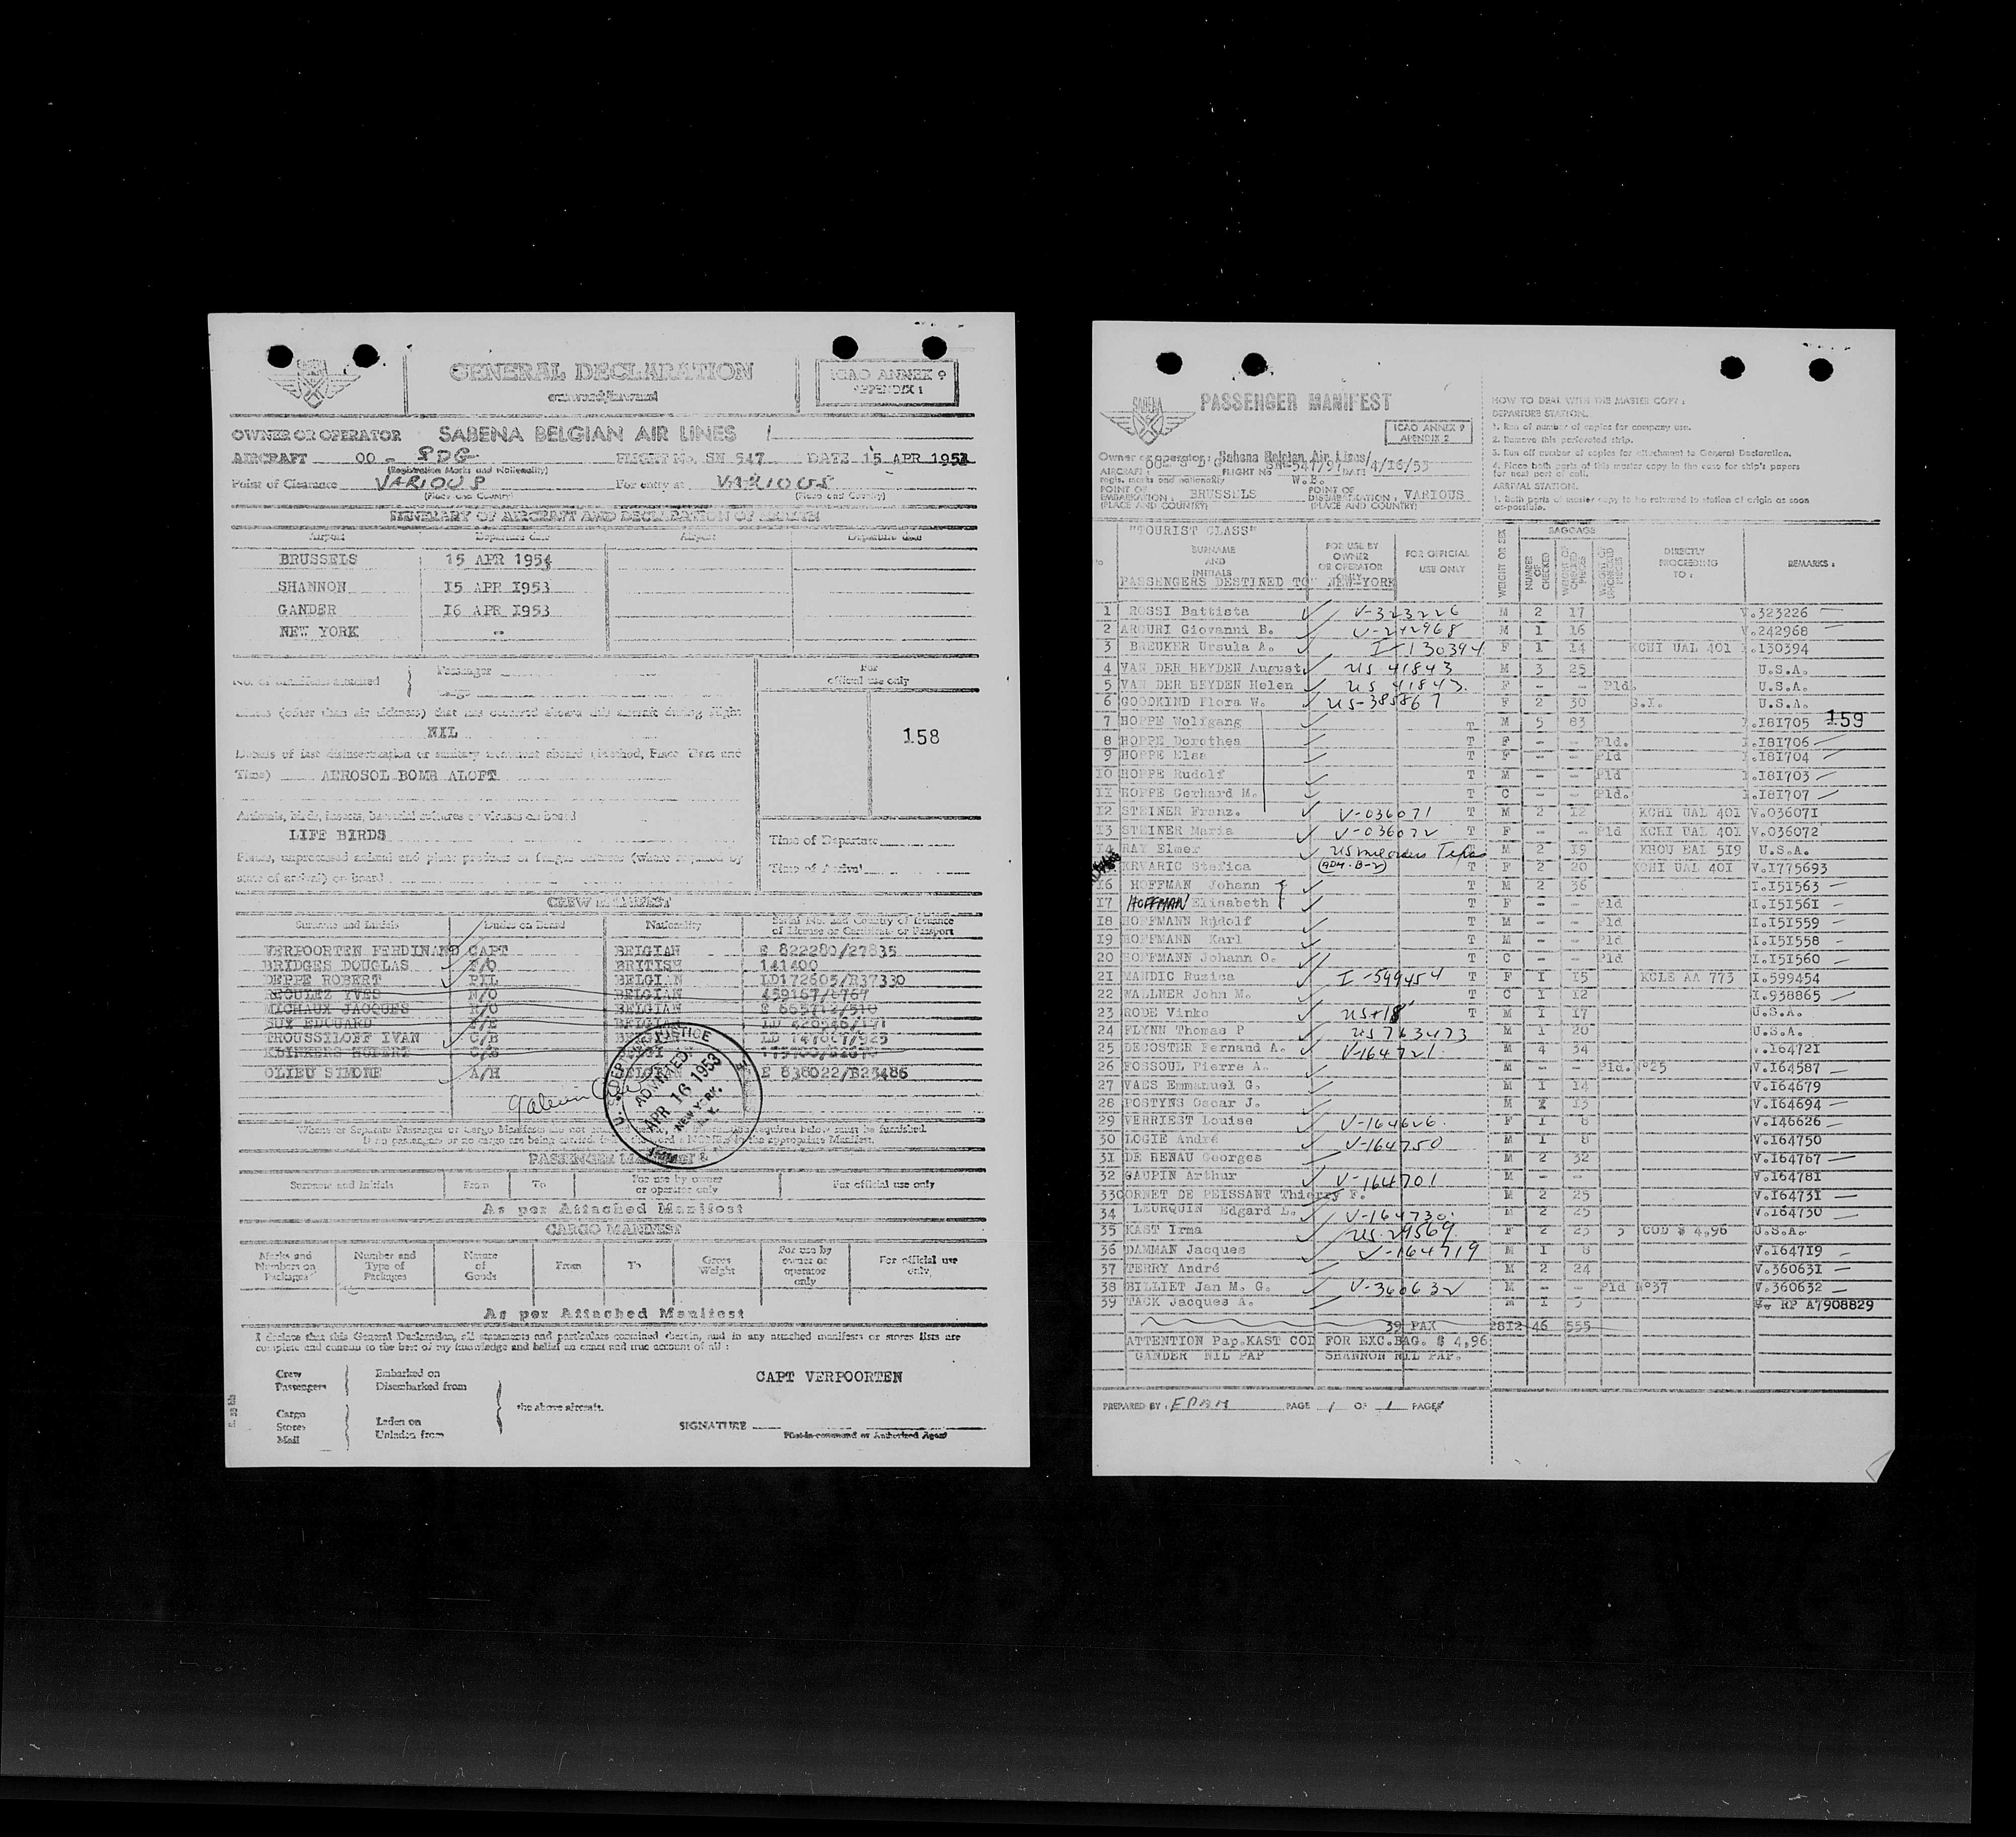 GENERAL DECLARATION
ICAO ANNEX 9
APPENDIX 1
OWNER OR OPERATOR SABENA BELGIAN AIR LINES /
AIRCRAFT OO - SDG FLIGHT No. SN 547 DATE 15 APR 1953
(Registration Marks and Nationality)
Point of Clearance VARIOUS For entry at VARIOUS
(Place and Country) (Place and Country)
ITINERARY OF AIRCRAFT AND DECLARATION OF HEALTH
Airport Departure date Airport Departure date
BRUSSELS 15 APR 1954
SHANNON I5 APR I953
GANDER I6 APR I953
NEW YORK --
No. of manifests attached Passenger
Cargo
For official use only
158
Illness (other than air sickness) that has occurred aboard this aircraft during flight
NIL
Details of last disinsectization or sanitary treatment aboard (Method, Place, Date and
Time) AEROSOL BOMB ALOFT
Animals, birds, insects, bacterial cultures or viruses on board
LIFE BIRDS
Plants, unprocessed animal and plant products or fungus cultures (where required by
state of arrival) on board
Time of Departure
Time of Arrival
CREW MANIFEST
Surname and Initials Duties on Board Nationality Serial No. and Country of Issuance
of License or Certificate or Passport
VERPOORTEN FERDINAND CAPT BELGIAN E 822280/27835
BRIDGES DOUGLAS F/O BRITISH 141400
DEPPE ROBERT PIL BELGIAN LD172605/R37330
YVES N/O BELGIAN
MICHAUX JACQUES R/O BELGIAN
SUY EDOUARD F/E
TROUSSILOFF IVAN C/B
HUBERT
OLIEU SIMONE A/H E 838022/B23486
U.S. DEPT. OF JUSTICE
ADMITTED
APR 16 1953
NEW YORK, N.Y.
Whenever Separate Passenger or Cargo Manifests are not
If no passengers or no cargo are being carried, in the appropriate Manifest.
PASSENGER MANIFEST
Surname and Initials From To For use by owner or operator only For official use only
As per Attached Manifest
CARGO MANIFEST
Marks and Numbers on Packages Number and Type of Packages Nature of Goods From To Gross Weight For use by owner or operator only For official use only
As per Attached Manifest
I declare that this General Declaration, all statements and particulars contained therein, and in any attached manifests or stores lists are
complete and to the best of my knowledge and belief an exact and true account of all :
Crew Embarked on
Passengers Disembarked from
the above aircraft.
Cargo
Stores Laden on
Mail Unladen from
CAPT VERPOORTEN
SIGNATURE
Pilot-in-command or Authorized Agent
SABENA PASSENGER MANIFEST
ICAO ANNEX 9
APENDIX 2
Owner or operator : Sabena Belgian Air Lines/
AIRCRAFT : OO- S D G FLIGHT No SN-547/97 DATE 4/16/53
regis. marks and nationality W.B.
POINT OF EMBARKATION : BRUSSELS POINT OF DISEMBARKATION : VARIOUS
(PLACE AND COUNTRY) (PLACE AND COUNTRY)
HOW TO DEAL WITH THE MASTER COPY :
DEPARTURE STATION.
1. Run of number of copies for company use.
2. Remove this perforated strip.
3. Run off number of copies for attachment to General Declaration.
4. Place both parts of this master copy in the case for ship's papers
for next port of call.
ARRIVAL STATION.
1. Both parts of master copy to be returned to station of origin as soon
as-possible.
"TOURIST CLASS"
SURNAME AND INITIALS FOR USE BY OWNER OR OPERATOR ONLY FOR OFFICIAL USE ONLY WEIGHT OR SEX BAGGAGE NUMBER OF CHECKED WEIGHT OF CHECKED PIECES WEIGHT OF UNCHECKED PIECES DIRECTLY PROCEEDING TO : REMARKS :
PASSENGERS DESTINED TO NEW-YORK
1 ROSSI Battista V-323226 M 2 17 V.323226
2 ARCURI Giovanni B. V-242968 M 1 16 V.242968
3 BREUKER Ursula A. I-130394 F 1 14 KCHI UAL 401 I.130394
4 VAN DER HEYDEN August US 41843 M 3 25 U.S.A.
5 VAN DER HEYDEN Helen US 41843 F - - Pld. U.S.A.
6 GOODKIND Flora W. US-385867 F 2 30 G.I. U.S.A.
7 HOPPE Wolfgang T M 5 83 I.I81705 159
8 HOPPE Dorothea T F - - Pld. I.I81706
9 HOPPE Elsa T F - - Pld I.I81704
IO HOPPE Rudolf T M - - Pld I.I81703
II HOPPE Gerhard M. T C - - Pld. I.I81707
I2 STEINER Franz. V-036071 T M 2 12 KCHI UAL 401 V.03607I
I3 STEINER Maria V-036072 T F - - Pld KCHI UAL 401 V.036072
I4 RAY Elmer T M 2 19 KHOU EAL 519 U.S.A.
KRVARIC Stefica (ADM. B-2) T F 2 20 KCHI UAL 40I V.I775693
I6 HOFFMAN Johann T M 2 36 I.I51563
I7 HOFFMAN Elisabeth T F - - Pld I.I51561
I8 HOFFMANN Rudolf T M - - Pld I.I51559
I9 HOFFMANN Karl T M - - Pld I.I51558
20 HOFFMANN Johann O. T C - - Pld I.I51560
2I MANDIC Ruzica I-599454 T F 1 15 KCLE AA 773 I.599454
22 WALLNER John M. T C 1 12 I.938865
23 RODE Vinko T M 1 17 U.S.A.
24 FLYNN Thomas P US 763473 M 1 20 U.S.A.
25 DECOSTER Fernand A. V-164721 M 4 34 V.16472I
26 FOSSOUL Pierre A. M - - Pld. N°25 V.I64587
27 VAES Emmanuel G. M 1 14 V.I64679
28 POSTYNS Oscar J. M 13 V.I64694
29 VERRIEST Louise V-164626. F 1 8 V.I46626
30 LOGIE André V-164750 M 1 8 V.164750
31 DE RENAU Georges M 2 32 V.I64767
32 GAUPIN Arthur V-164701 M - - V.16478I
33 CORNET DE PEISSANT Thierry F. M 2 25 V.I6473I
34 LEURQUIN Edgard L. V-164730. M 2 25 V.164730
35 KAST Irma US.29569 F 2 23 5 COD $ 4,96 U.S.A.
36 DAMMAN Jacques V-164719 M 1 8 V.164719
37 TERRY André M 2 24 V.360631
38 BILLIET Jan M. G. V-360632 M - - Pld N°37 V.360632
39 TACK Jacques A. M 1 5 RP A7908829
39 PAX 2812 46 555
ATTENTION Pap.KAST COD FOR EXC.BAG. $ 4,96
GANDER NIL PAP SHANNON NIL PAP.
PREPARED BY : PAGE 1 OF 1 PAGES